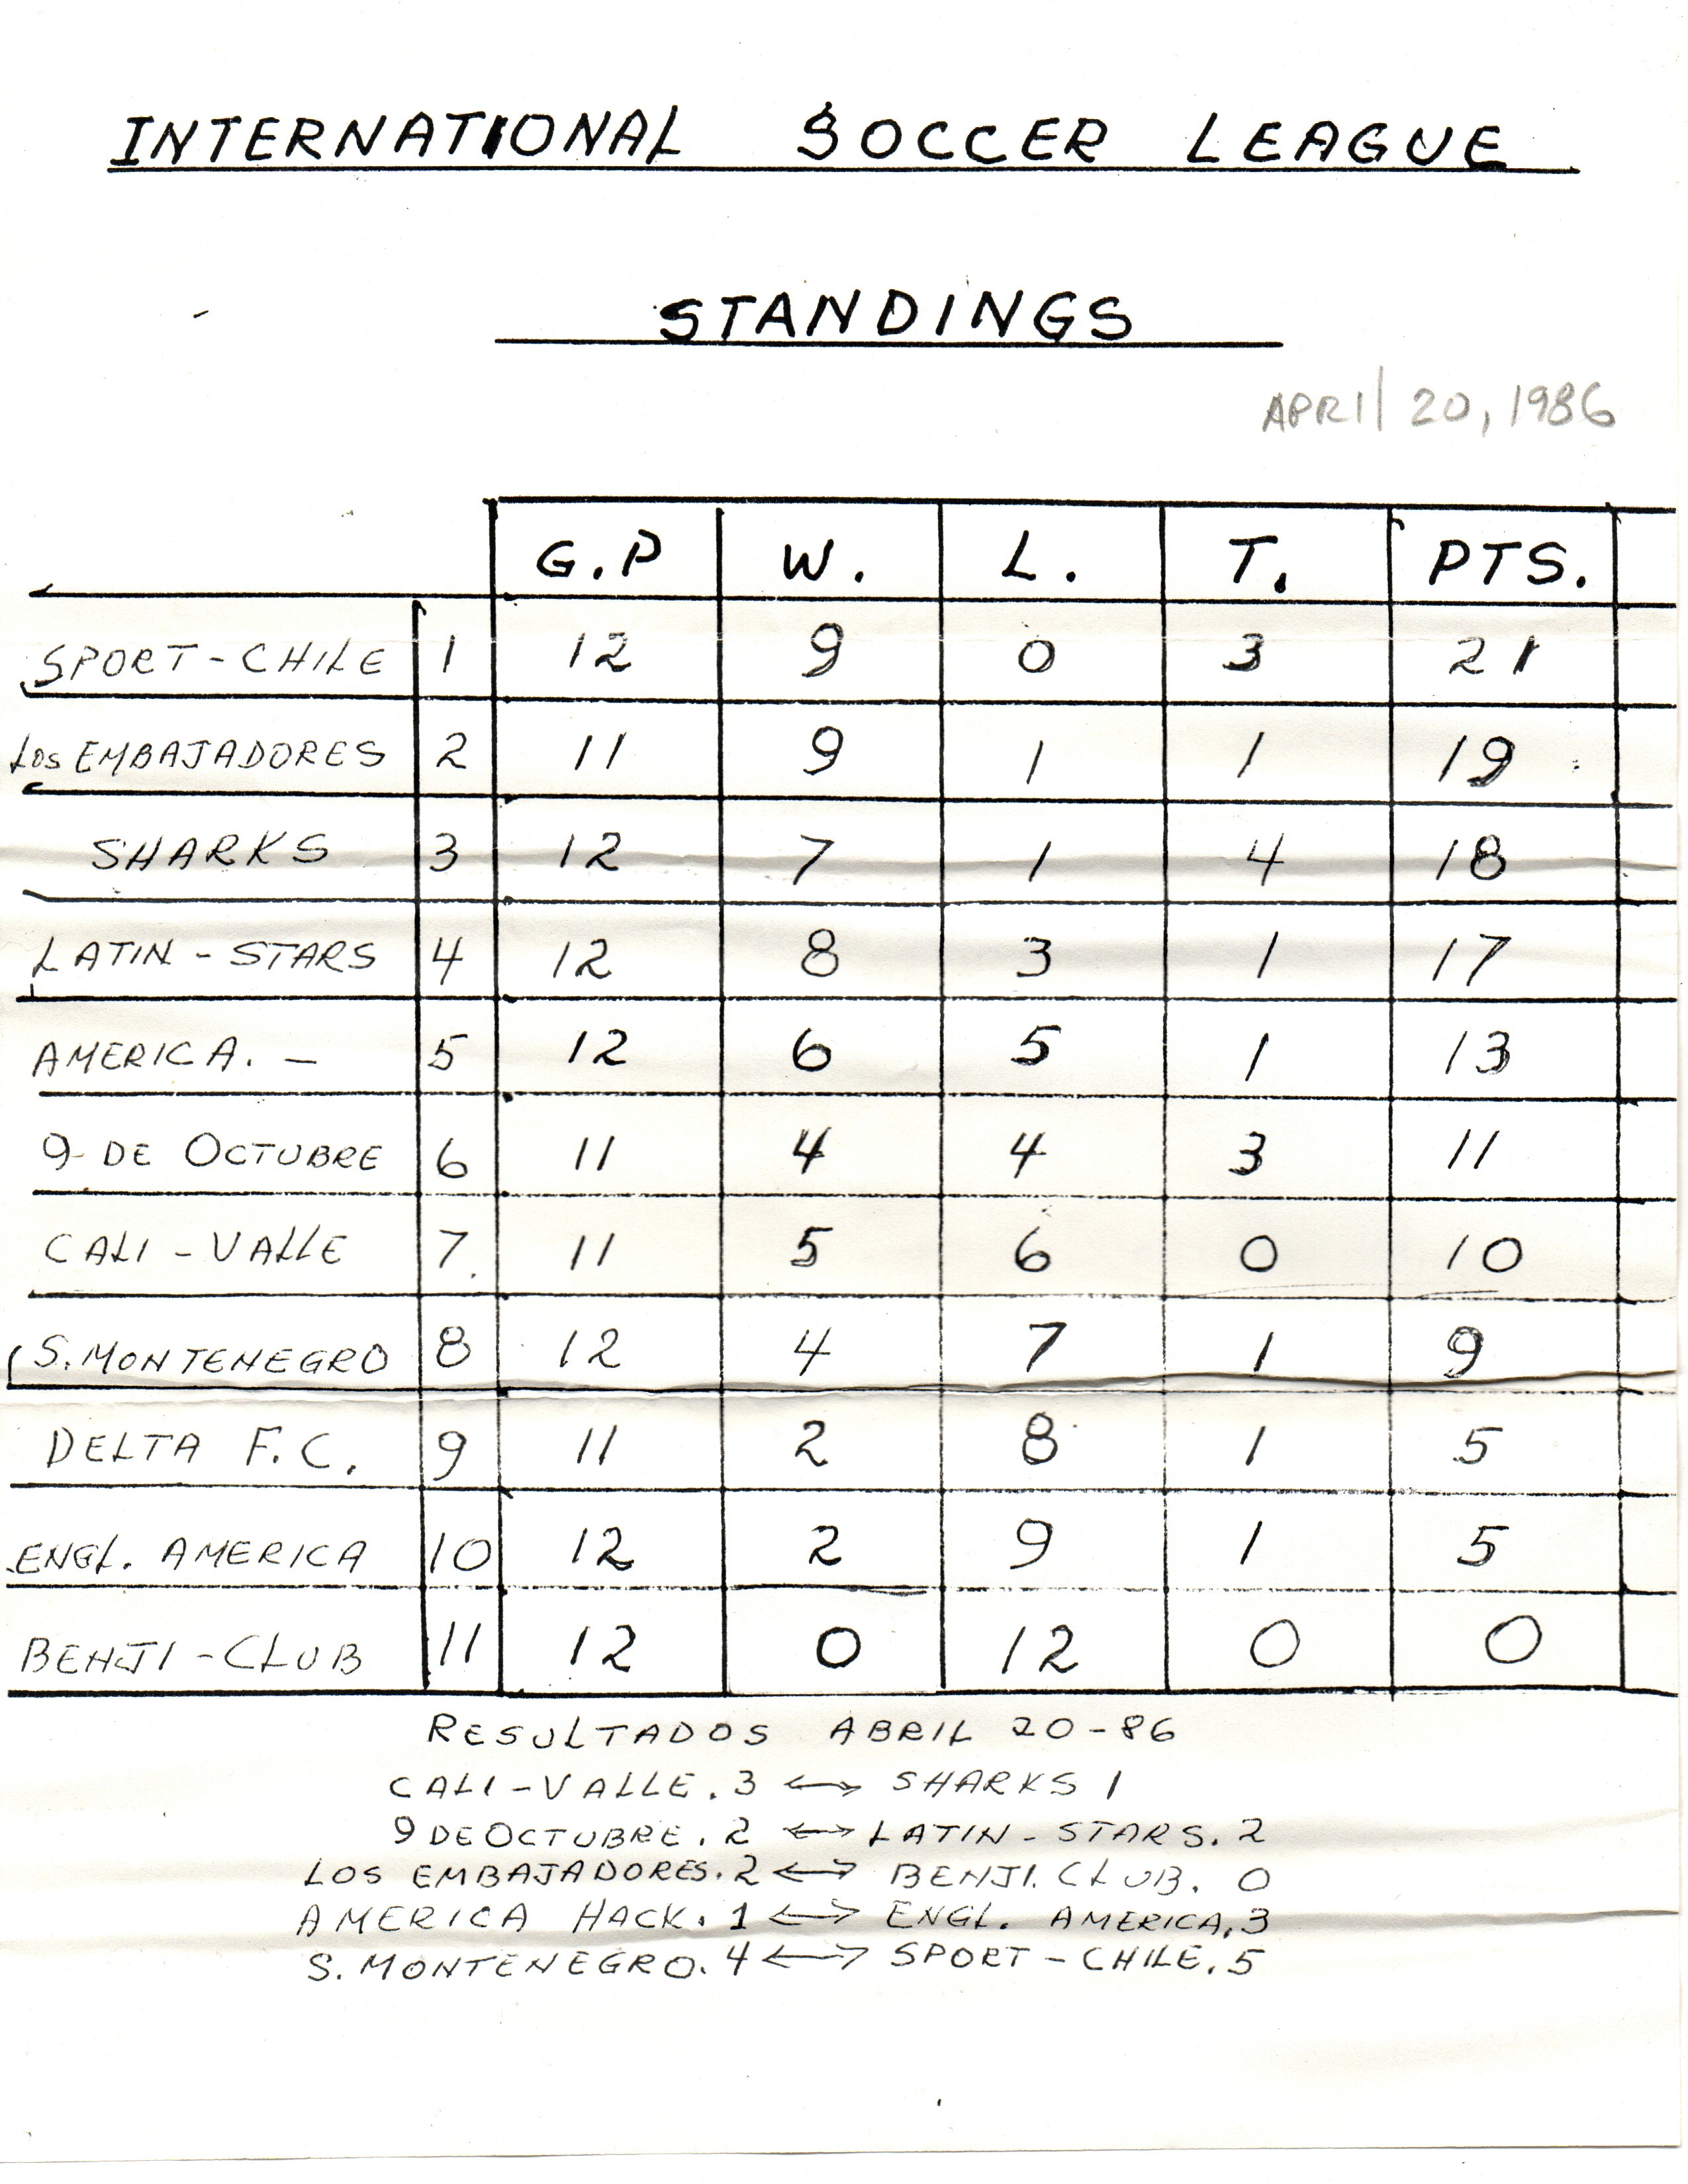 INTERNATIONAL SOCCER LEAGUE
STANDINGS
APRIL 20, 1986
G.P W. L. T. PTS.
SPORT-CHILE 1 12 9 0 3 21
LOS EMBAJADORES 2 11 9 1 1 19
SHARKS 3 12 7 1 4 18
LATIN-STARS 4 12 8 3 1 17
AMERICA. - 5 12 6 5 1 13
9 DE OCTUBRE 6 11 4 4 3 11
CALI-VALLE 7. 11 5 6 0 10
S. MONTENEGRO 8 12 4 7 1 9
DELTA F.C. 9 11 2 8 1 5
ENGL. AMERICA 10 12 2 9 1 5
BENJI-CLUB 11 12 0 12 0 0
RESULTADOS ABRIL 20-86
CALI-VALLE. 3 ↔ SHARKS 1
9 DE OCTUBRE. 2 ↔ LATIN-STARS. 2
LOS EMBAJADORES. 2 ↔ BENJI. CLUB. 0
AMERICA HACK. 1 ↔ ENGL. AMERICA, 3
S. MONTENEGRO. 4 ↔ SPORT-CHILE. 5